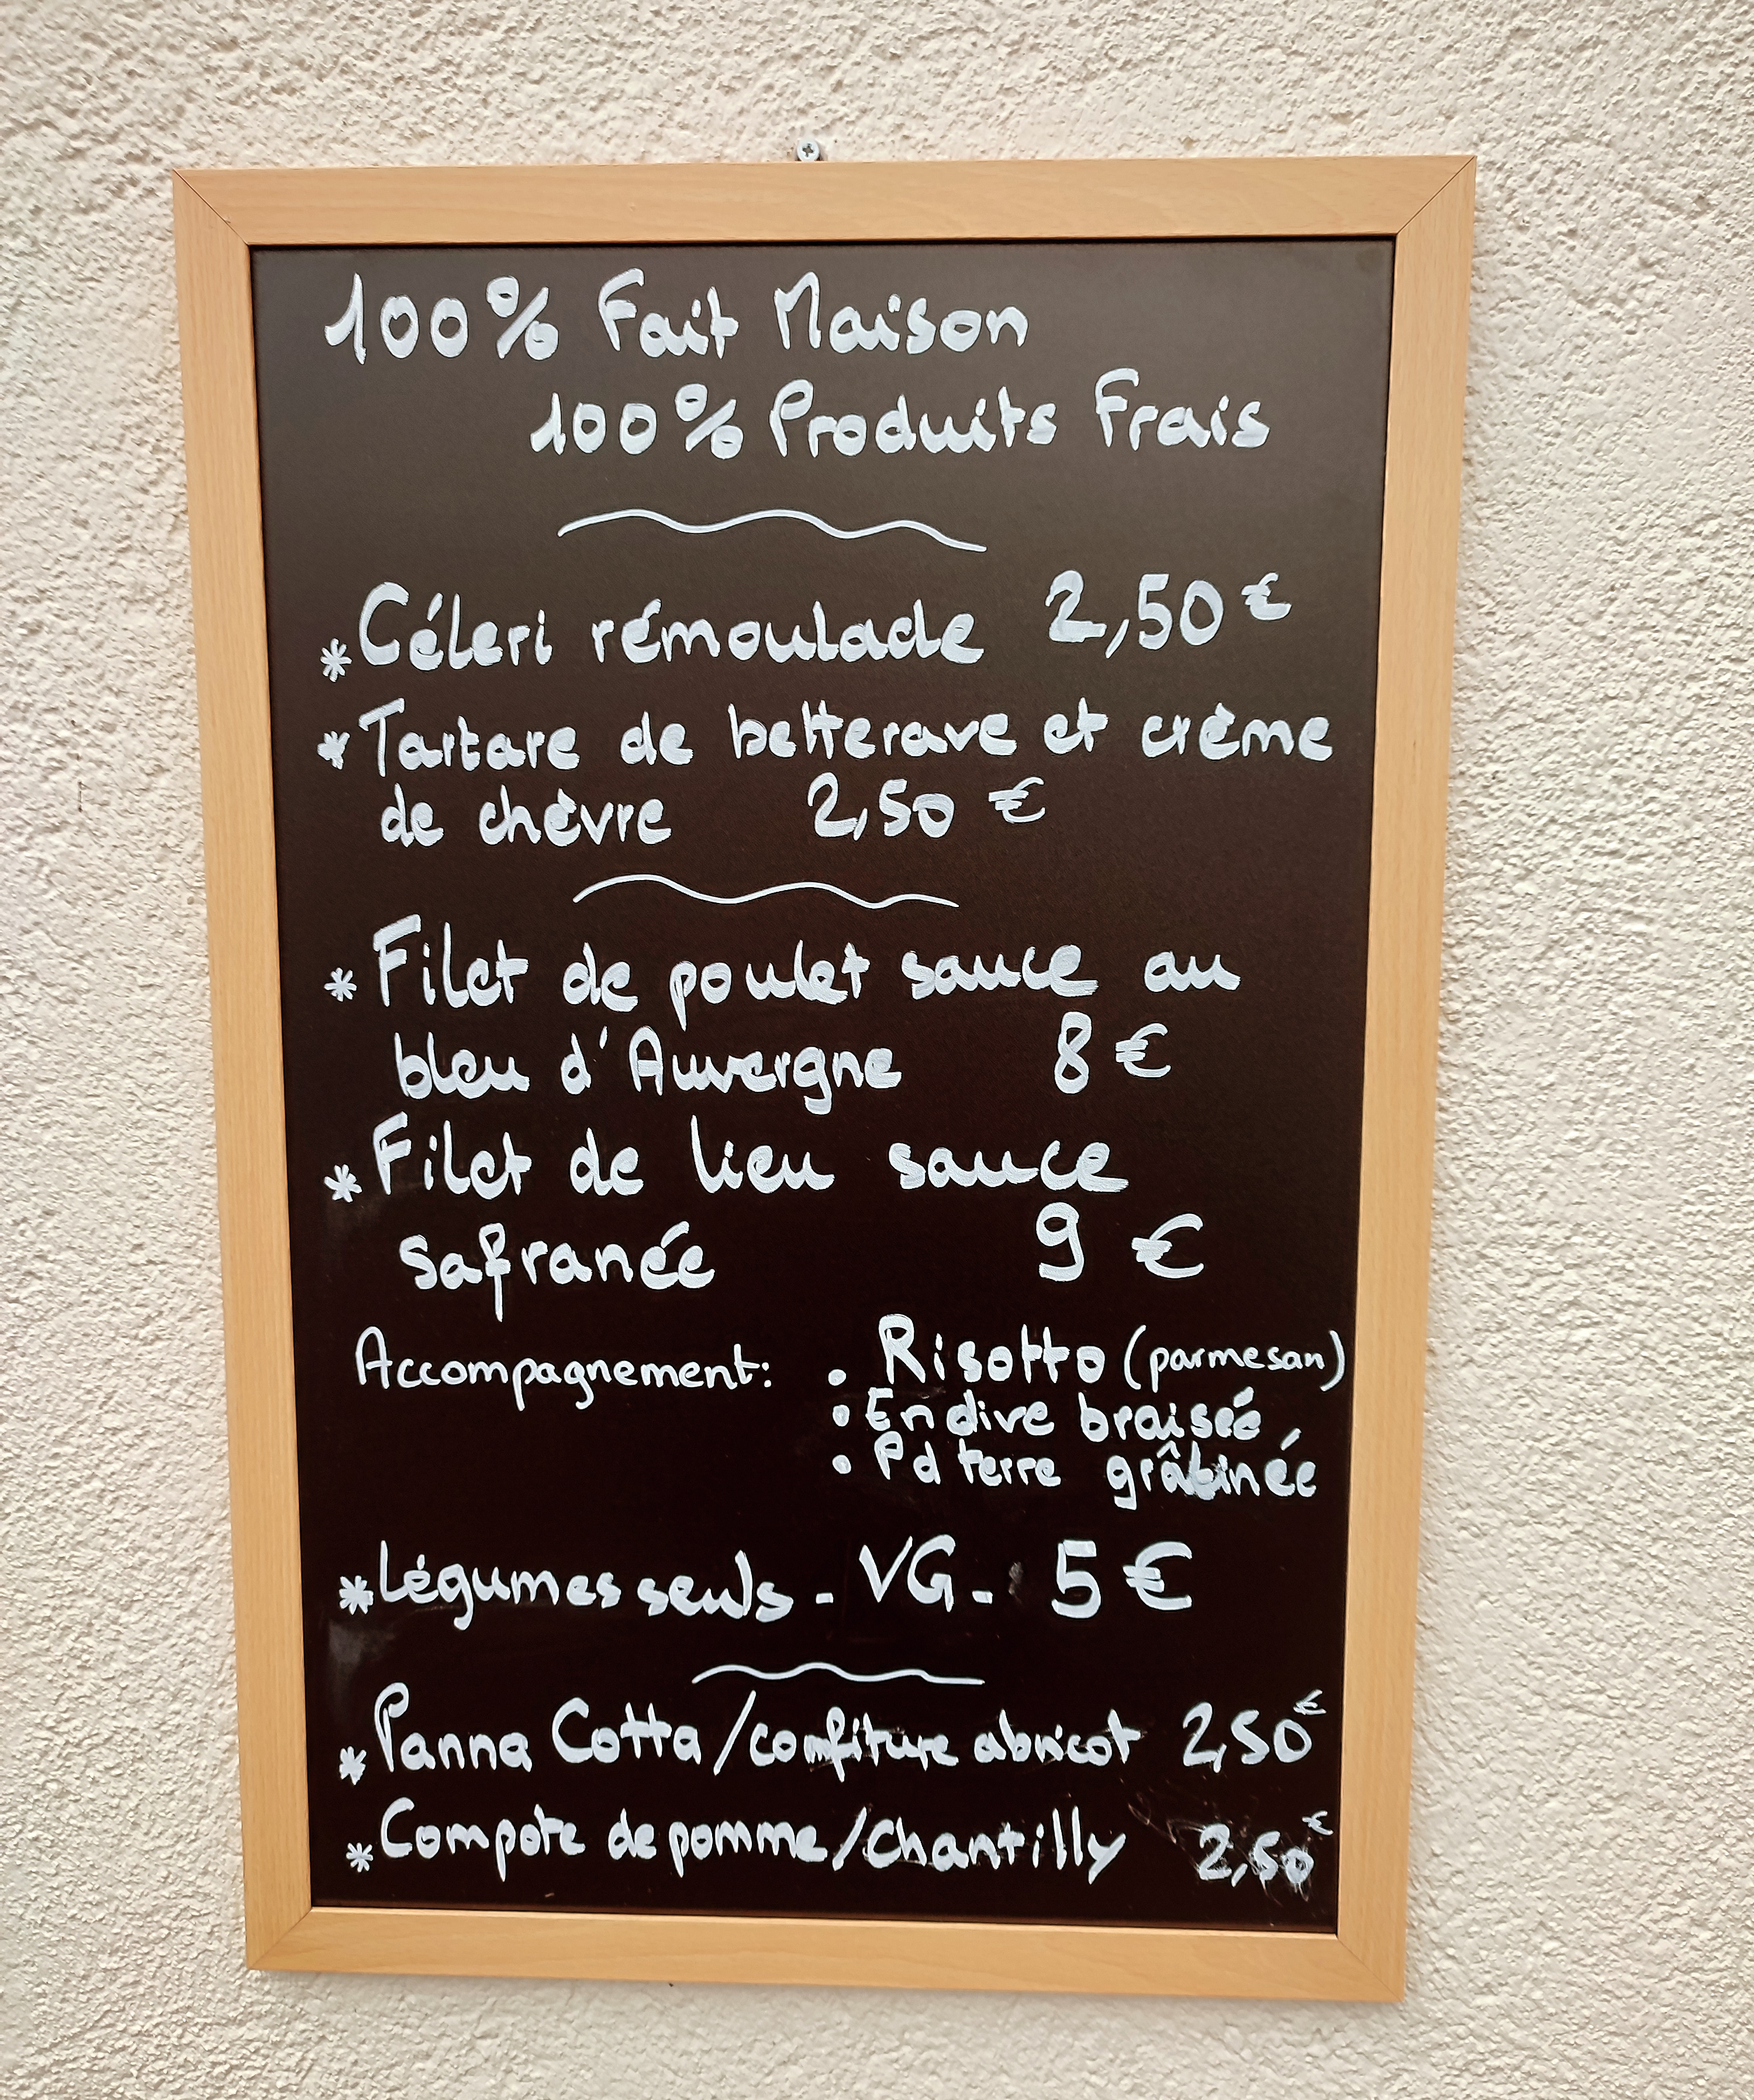 100% Fait Maison
100% Produits Frais
* Céleri rémoulade 2,50 €
* Tartare de betterave et crème
de chèvre 2,50 €
* Filet de poulet sauce au
bleu d'Auvergne 8 €
* Filet de lieu sauce
safranée 9 €
Accompagnement: • Risotto (parmesan)
• Endive braisée
• Pd terre grâtinée
* Légumes seuls - VG - 5 €
* Panna Cotta / confiture abricot 2,50 €
* Compote de pomme / Chantilly 2,50 €